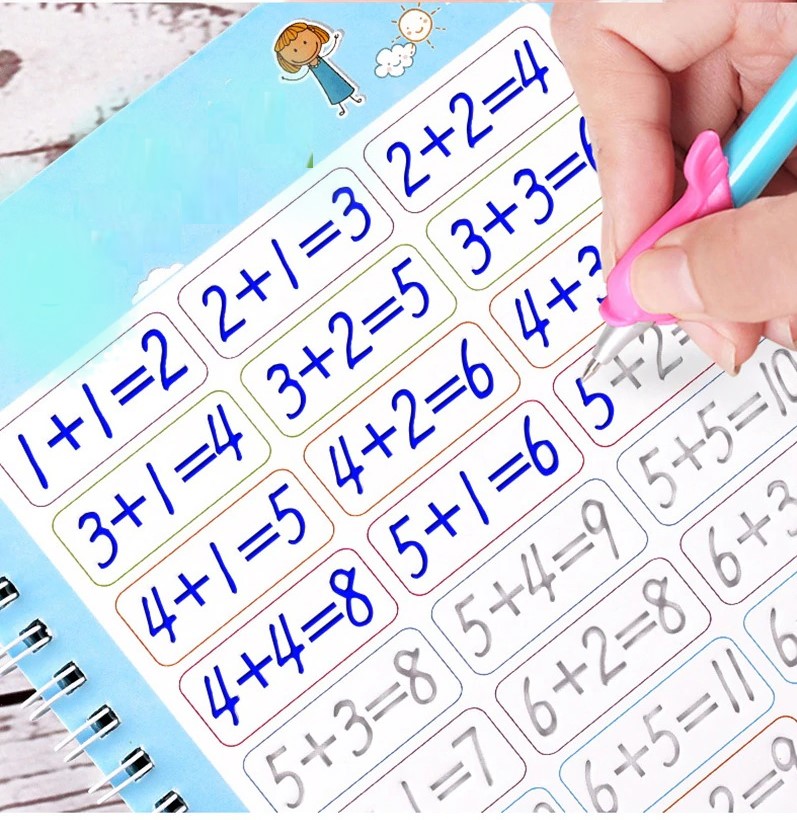 1+1=2 2+1=3 2+2=4
3+1=4 3+2=5 3+3=6
4+1=5 4+2=6 4+3
4+4=8 5+1=6 5+2=
5+3=8 5+4=9 5+5=10
1=7 6+2=8 6+3
6+5=11 6
2=9